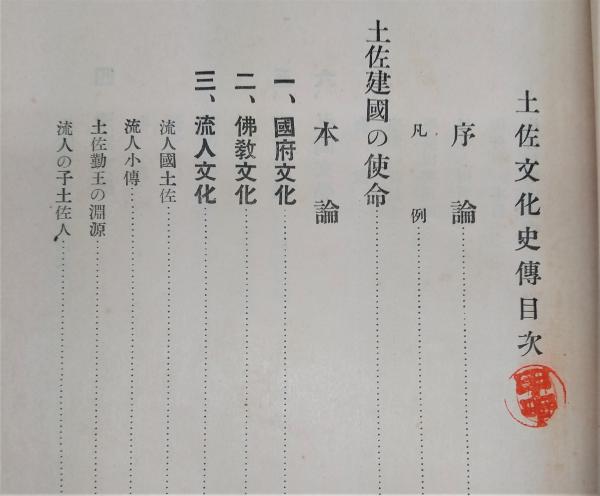 土佐文化史傳目次
序論
凡例
土佐建國の使命
本論
一、國府文化
二、佛教文化
三、流人文化
流人國土佐
流人小傳
土佐勤王の淵源
流人の子土佐人